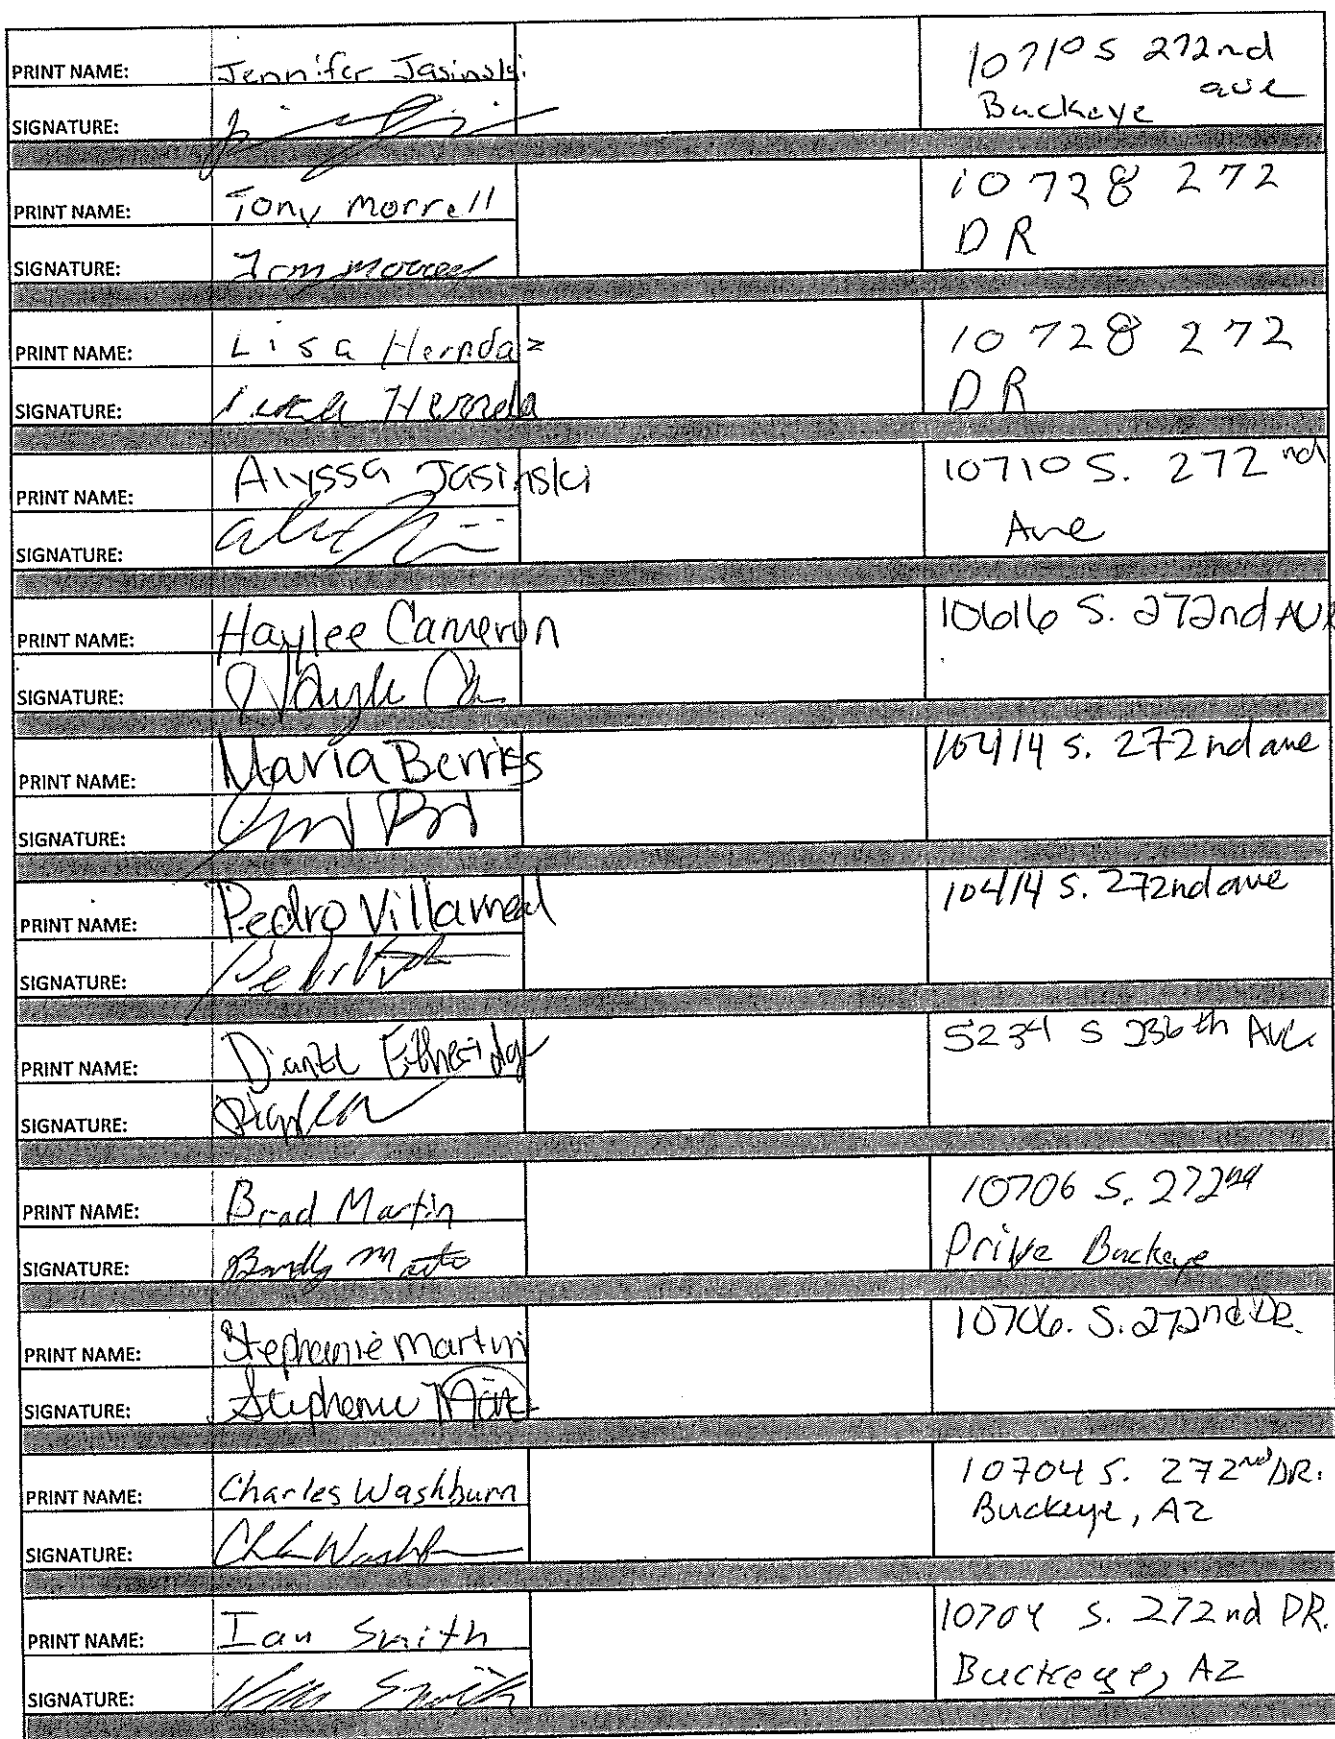 PRINT NAME: Jennifer Jasinski 10710 S 272nd
ave
Buckeye
SIGNATURE:
PRINT NAME: Tony Morrell 10728 272
DR
SIGNATURE: Tony Morrell
PRINT NAME: Lisa Herndaz 10728 272
DR
SIGNATURE: Hernda
PRINT NAME: Alyssa Jasinski 10710 S. 272nd
Ave
SIGNATURE:
PRINT NAME: Haylee Cameron 10616 S. 272nd Ave
SIGNATURE:
PRINT NAME: Maria Berrios 10414 S. 272nd ave
SIGNATURE:
PRINT NAME: Pedro Villarreal 10414 S. 272nd ave
SIGNATURE:
PRINT NAME: Etheridge 5234 S 236th Ave.
SIGNATURE:
PRINT NAME: Brad Martin 10706 S. 272nd
Drive Buckeye
SIGNATURE:
PRINT NAME: Stephanie Martin 10706. S. 272nd Dr.
SIGNATURE: Stephanie
PRINT NAME: Charles Washburn 10704 S. 272nd DR.
Buckeye, AZ
SIGNATURE:
PRINT NAME: Ian Smith 10704 S. 272nd DR.
Buckeye, AZ
SIGNATURE: Smith